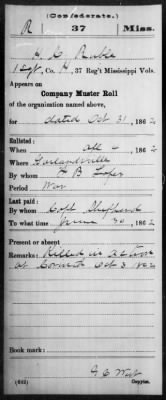 (Confederate.)
R 37 Miss.
1 Sgt, Co. H, 37 Reg't Mississippi Vols.
Appears on
Company Muster Roll
of the organization named above,
for dated Oct 31, 1862
Enlisted:
When , 1862
Where
By whom
Period War
Last paid:
By whom Capt
To what time June 30, 1862
Present or absent
Remarks: Killed in action
at Corinth Oct 3 1862
Book mark:
(642)
Copyist.